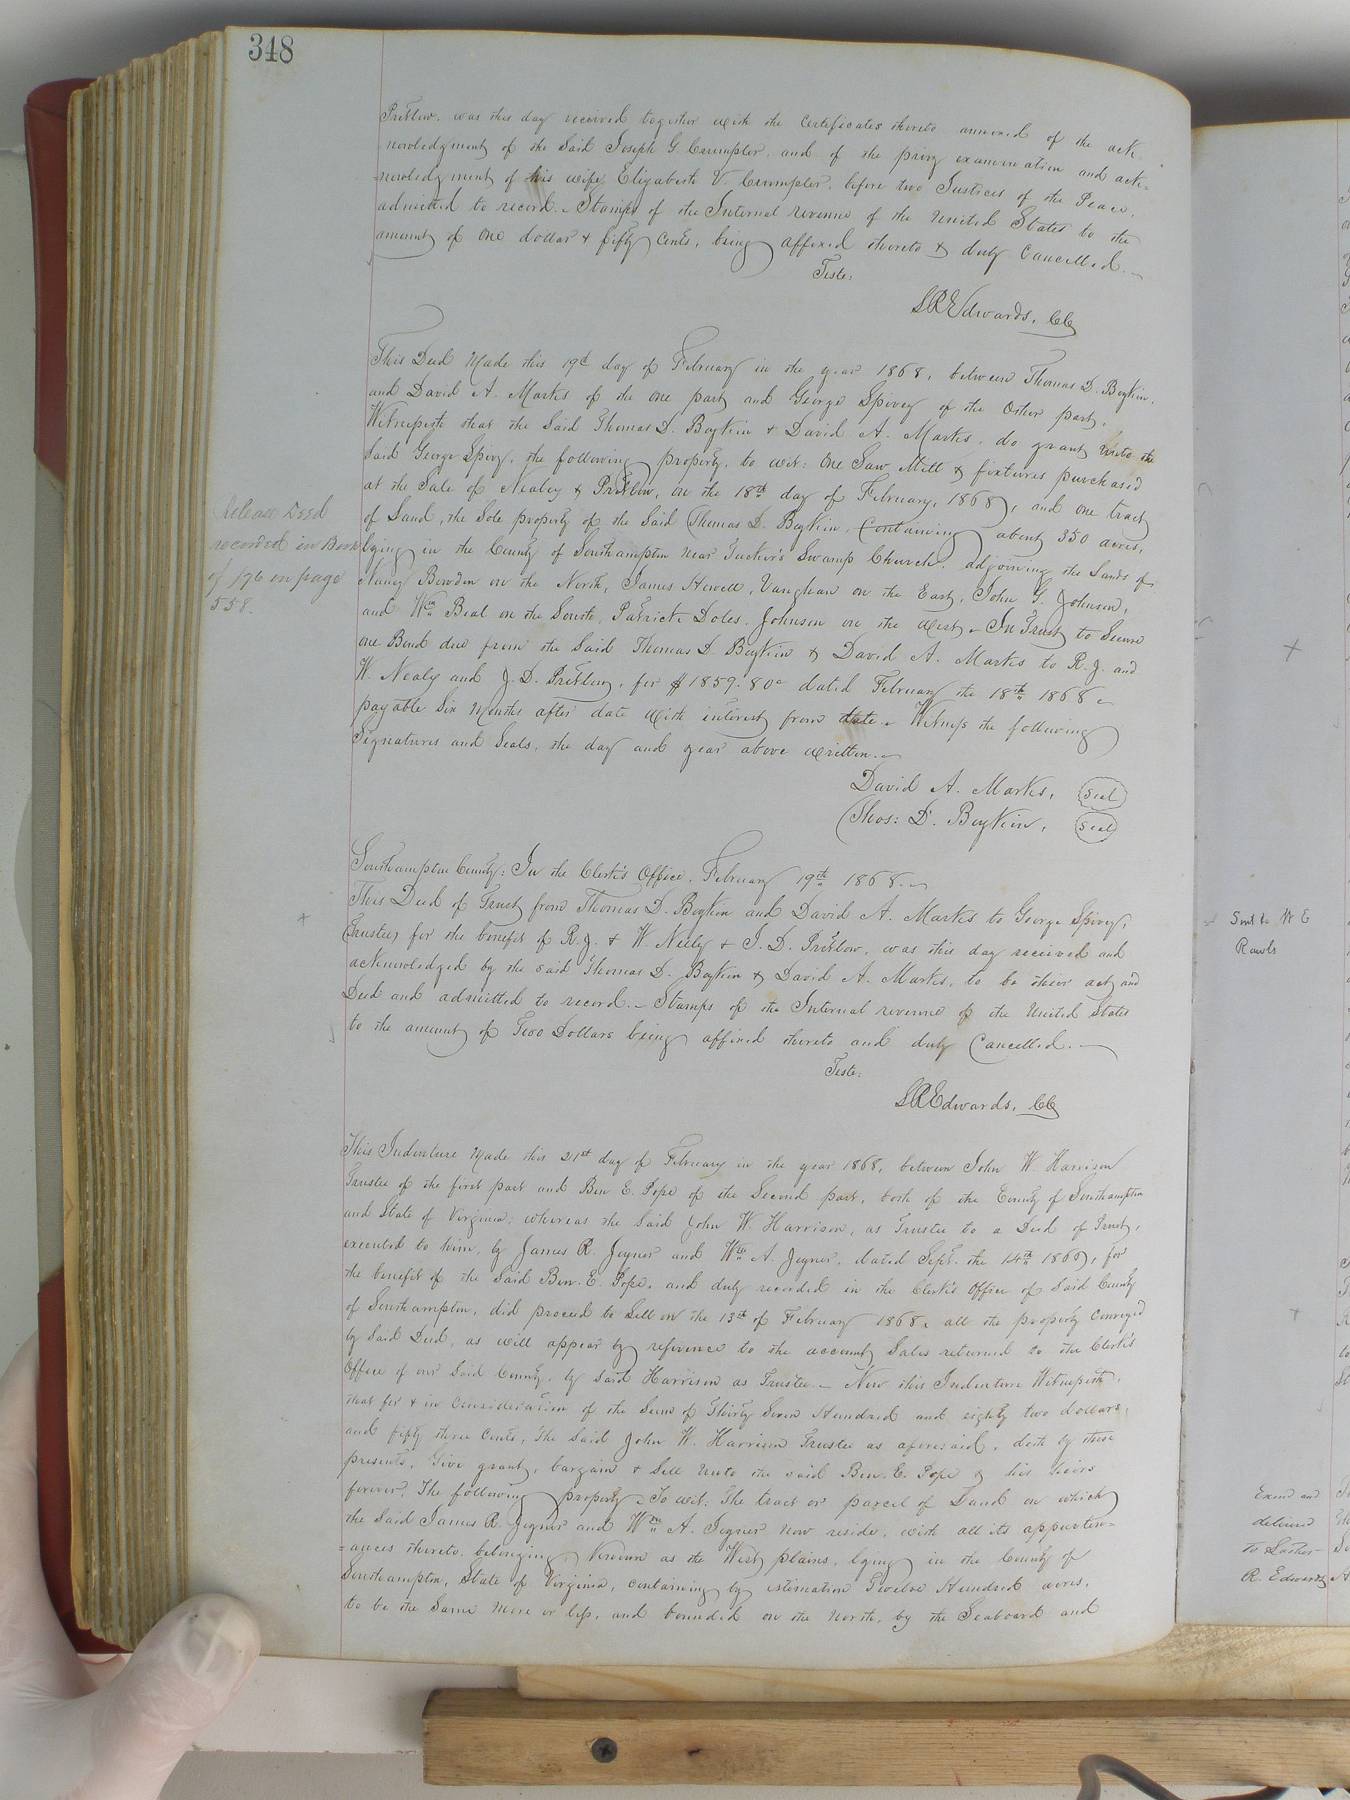 348
Pretlow, was this day received together with the Certificates thereto annexed of the ack-
nowledgment of the Said Joseph G. Crumpler, and of the privy examination and ack=
=nowledgment of his wife, Elizabeth V. Crumpler, before two Justices of the Peace,
admitted to record. Stamps of the Internal revenue of the United States to the
amount of One dollar & fifty Cents, being affixed thereto & duly Cancelled.
Teste:
LREdwards, CC
This Deed Made this 19th day of February in the year 1868, between Thomas D. Boykin,
and David A. Marks of the one part and George Spivey of the Other part,
Witnesseth that the Said Thomas D. Boykin & David A. Marks, do grant unto the
Said George Spivy, the following property, to wit: One Saw Mill & fixtures purchased
at the Sale of Nealey & Pretlow, on the 18th day of February, 1868, and one tract
of Land, the Sole property of the Said Thomas D. Boykin, Containing about 350 acres,
lying in the County of Southampton near Tucker's Swamp Church, adjoining the Lands of
Nancy Bowden on the North, James Howell, Vaughan on the East, John G. Johnson,
and Wm Beal on the South, Patrick Doles, Johnson on the West. In Trust to Secure
one Bond due from the Said Thomas D Boykin & David A. Marks to R. J. and
W. Nealy and J. D. Pretlow, for $1859.80 dated February the 18th 1868
payable Six Months after date with interest from date. Witness the following
Signatures and Seals, the day and year above written.
David A. Marks, Seal
Thos: D. Boykin, Seal
Release Deed
recorded in Book
of 176 on page
558.
Southampton County: In the Clerk's Office, February 19th 1868.
This Deed of Trust from Thomas D. Boykin and David A. Marks to George Spivey,
Trustee, for the benefit of R. J. & W. Neely & J. D. Pretlow, was this day received and
acknowledged by the said Thomas D. Boykin & David A. Marks, to be their act and
Deed and admitted to record. Stamps of the Internal revenue of the United States
to the amount of Two Dollars being affixed thereto and duly Cancelled.
Teste:
LREdwards, CC
This Indenture Made this 21st day of February in the year 1868, between John W Harrison
Trustee of the first part and Ben E. Pope of the Second part, both of the County of Southampton
and State of Virginia; whereas the Said John W. Harrison, as Trustee to a Deed of Trust,
executed to him, by James R. Joyner and Wm A. Joyner, dated Sept. the 14th 1866, for
the benefit of the Said Ben. E. Pope, and duly recorded in the Clerk's Office of Said County
of Southampton, did proceed to Sell on the 13th of February 1868, all the property Conveyed
by Said Deed, as will appear by reference to the account Sales returned to the Clerk's
Office of our Said County, by Said Harrison as Trustee. Now this Indenture Witnesseth,
that for & in Consideration of the Sum of Thirty Seven Hundred and eighty two dollars,
and fifty three Cents, the Said John W. Harrison Trustee as aforesaid, doth by these
presents, Give grant, bargain & Sell unto the said Ben. E. Pope & his heirs
forever, The following property, To wit: The tract or parcel of Land on which
the Said James R. Joyner and Wm A. Joyner now reside, with all its appurten=
=ances thereto, belonging, Known as the West plains, lying in the County of
Southampton, State of Virginia, containing by estimation Twelve Hundred acres,
to be the Same more or less, and bounded on the North, by the Seaboard and
Sent to W E
Rawls
Exmd and
delivered
to
R. Edwards